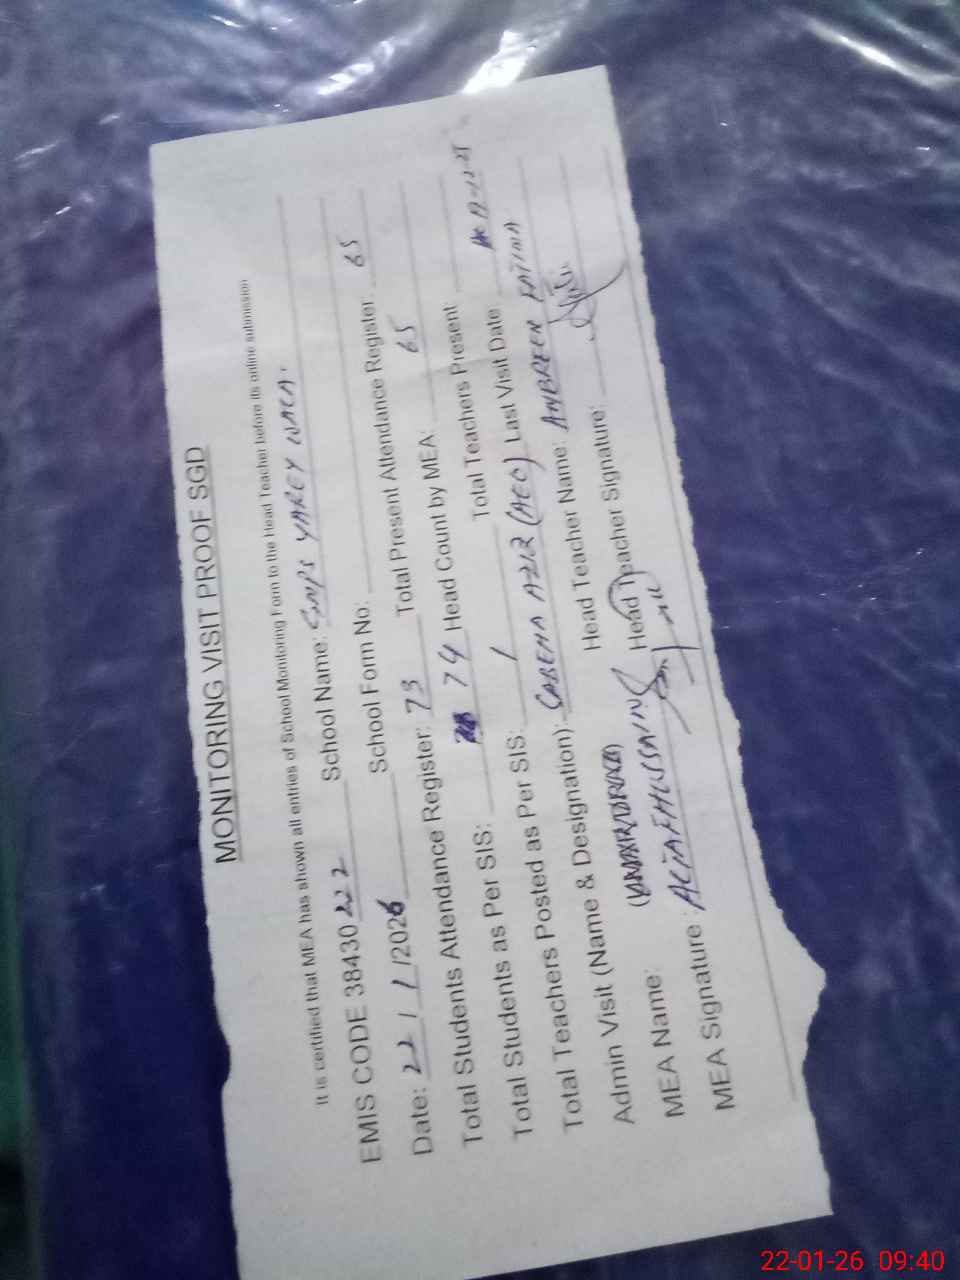 MONITORING VISIT PROOF SGD
It is certified that MEA has shown all entries of School Monitoring Form to the Head Teacher before its online submission
EMIS CODE 38430222 School Name: GMPS YAREY WALA.
Date: 22/1/2026 School Form No:
Total Students Attendance Register: 73 Total Present Attendance Register: 65
Total Students as Per SIS: 74 Head Count by MEA: 65
Total Teachers Posted as Per SIS: 1 Total Teachers Present:
Admin Visit (Name & Designation): AZIZ (AEO) Last Visit Date:
MEA Name: Head Teacher Name: AMBREEN FATIMA
MEA Signature: ALTAF HUSSAIN Head Teacher Signature:
22-01-26 09:40